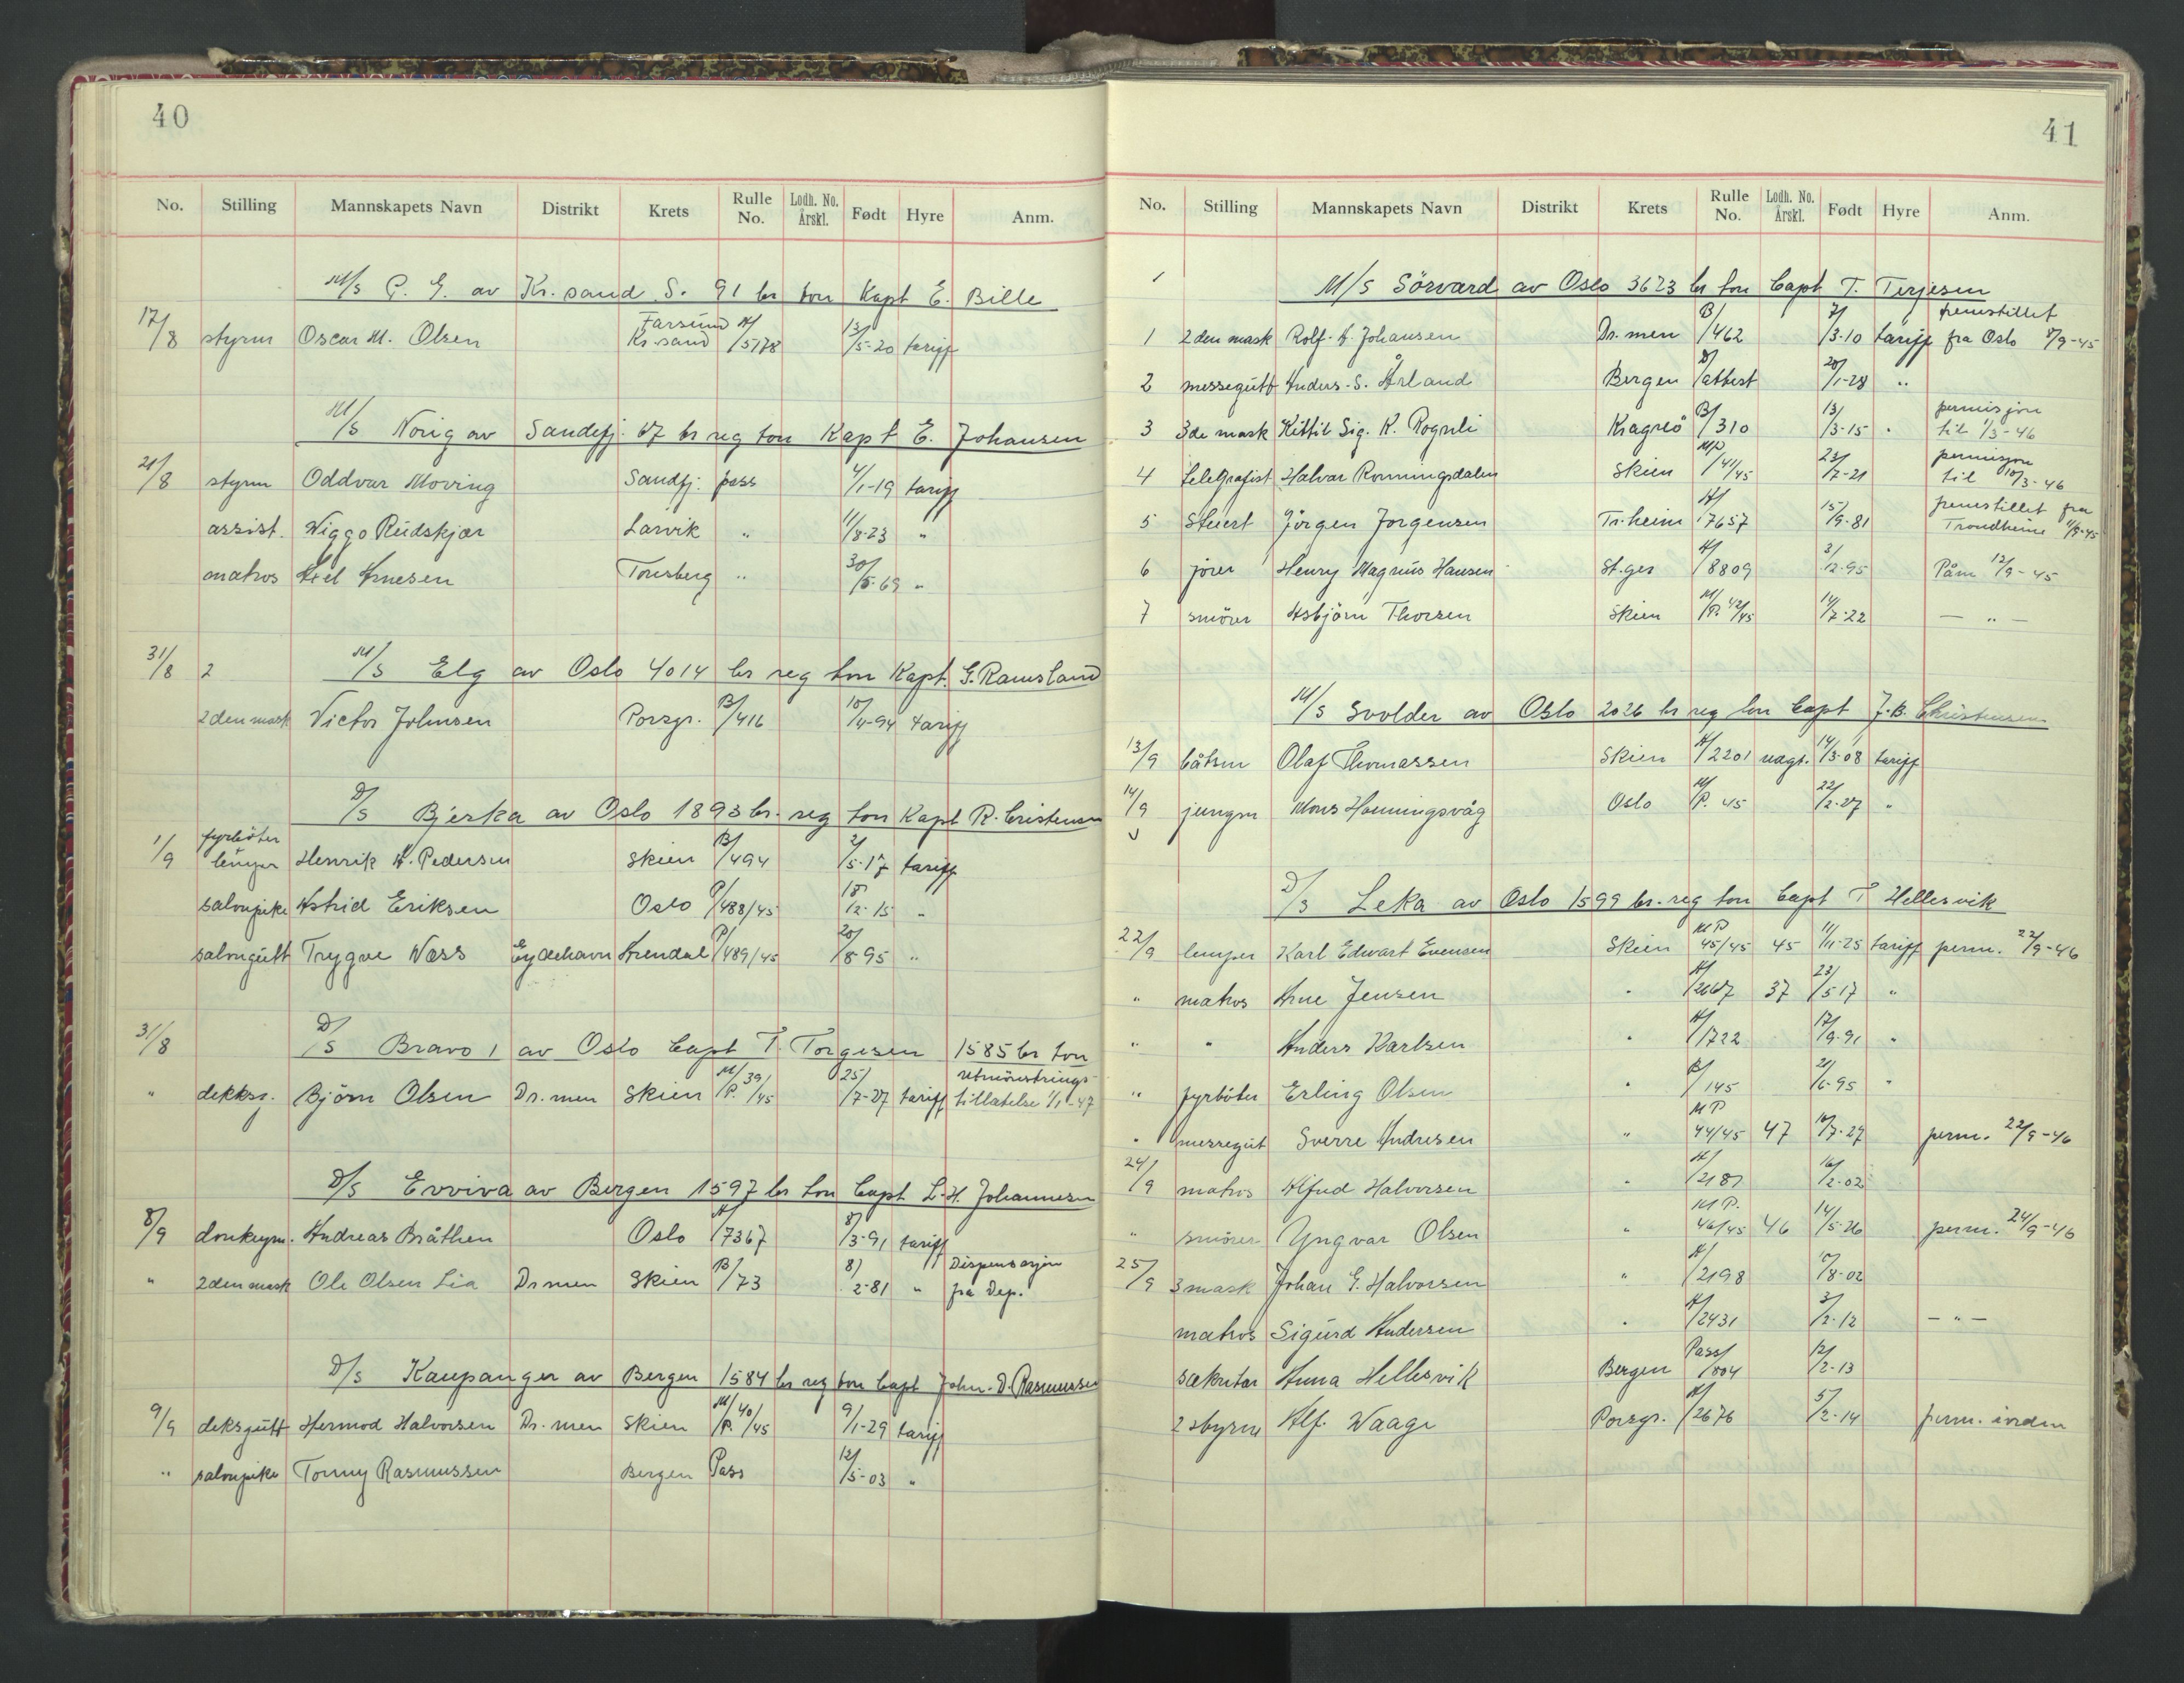 40
No. Stilling Mannskapets Navn Distrikt Krets Rulle No. Lodh. No. Årskl. Født Hyre Anm.
M/s P. G. av Kr.sand S. 91 br ton Kapt E. Bille
17/8 styrm Oscar M. Olsen Farsund Kr.sand A/5178 13/5-20 tariff
M/s Norig av Sandefj. 67 br reg ton Kapt E. Johansen
21/8 styrm Oddvar Moving Sandfj. pass 4/1-19 tariff
assist. Wiggo Rudskjær Larvik " 11/8-23 "
matros Axel Arnesen Tønsberg " 30/5-69 "
31/8 2 M/s Elg av Oslo 4014 br reg ton Kapt. G. Ramsland
2den mask Victor Johnsen Porsgr. B/416 10/4-94 tariff
D/s Bjerka av Oslo 1893 br. reg ton Kapt R. Cristensen
1/9 fyrböter lemper Henrik A. Pedersen Skien B/494 2/5-17 tariff
salonpike Astrid Eriksen Oslo P/488/45 18/12-15 "
salongutt Trygve Wass Eydehavn Arendal P/489/45 20/8-95 "
31/8 D/s Bravo 1 av Oslo Capt T. Torgesen 1585 br ton
" dekksg. Björn Olsen Dr.men Skien M/P. 39/45 25/7-27 tariff Utmönstrings-tillatelse 1/1-47
D/s Evviva av Bergen 1597 br ton Capt L. H. Johannesen
8/9 donkeym. Andreas Bråthen Oslo A/7367 8/3-91 tariff
" 2den mask Ole Olsen Lia Dr men Skien B/73 8/2-81 " Dispensasjon fra Dep.
D/s Kaupanger av Bergen 1584 br reg ton Capt John. D. Rasmussen
9/9 deksgutt Hermod Halvorsen Dr. men Skien M/P. 40/45 9/1-29 tariff
" salonpike Tonny Rasmussen Bergen Pass 12/5-03 "
41
No. Stilling Mannskapets Navn Distrikt Krets Rulle No. Lodh. No. Årskl. Født Hyre Anm.
1 M/s Sörvard av Oslo 3623 br ton Capt T. Terjesen
1 2den mask Rolf. A. Johansen Dr.men B/462 7/3-10 tariff fremstillet fra Oslo 8/9-45
2 messegutt Anders. S. Årland Bergen D/attest 20/1-28 "
3 3de mask Kittil Sig. K. Rognli Kragerö B/310 13/3-15 " permisjon til 1/3-46
4 telegrafist Halvar Rønningsdalen Skien MP/41/45 23/7-21 permisjon til 10/3-46
5 Stuert Jörgen Jorgensen Tr.heim A/7657 15/9-81 fremstillet fra Trondheim 11/9-45
6 fører Henry Magnus Hansen St.ger A/8809 2/12-95 Påm 12/9-45
7 smörer Asbjörn Thorsen Skien M/P. 42/45 14/7-22 — " —
M/s Svolder av Oslo 2026 br reg ton Capt J. B. Christensen
13/9 båtsm Olaf Thomassen Skien A/2201 uagt. 14/3-08 tariff
14/9 jungm Mons Honningsvåg Oslo M/P. 45 22/2-27 "
D/s Leka av Oslo 1599 br. reg ton Capt T Hellesvik
22/9 lemper Karl Edvart Evensen Skien MP 45/45 45 11/11-25 tariff perm. 22/9-46
" matros Arne Jensen " A/2667 37 23/5-17 "
" " Anders Karlsen " A/1722 17/9-91 "
" fyrböter Erling Olsen " B/145 21/6-95 "
" messegut Sverre Andresen " MP 44/45 47 10/7-27 perm. 22/9-46
24/9 matros Alfred Halvorsen " A/2187 16/2-02
" smörer Yngvar Olsen " MP. 46/45 46 14/5-26 perm. 24/9-46
25/9 3 mask Johan G. Halvorsen " A/2198 10/8-02
matros Sigurd Andersen " A/2431 3/2-12 — " —
sekretær Anna Hellesvik Bergen Pass/804 12/2-13
2 styrm Alf. Waage Porsgr. A/2676 5/2-14 perm. iorden